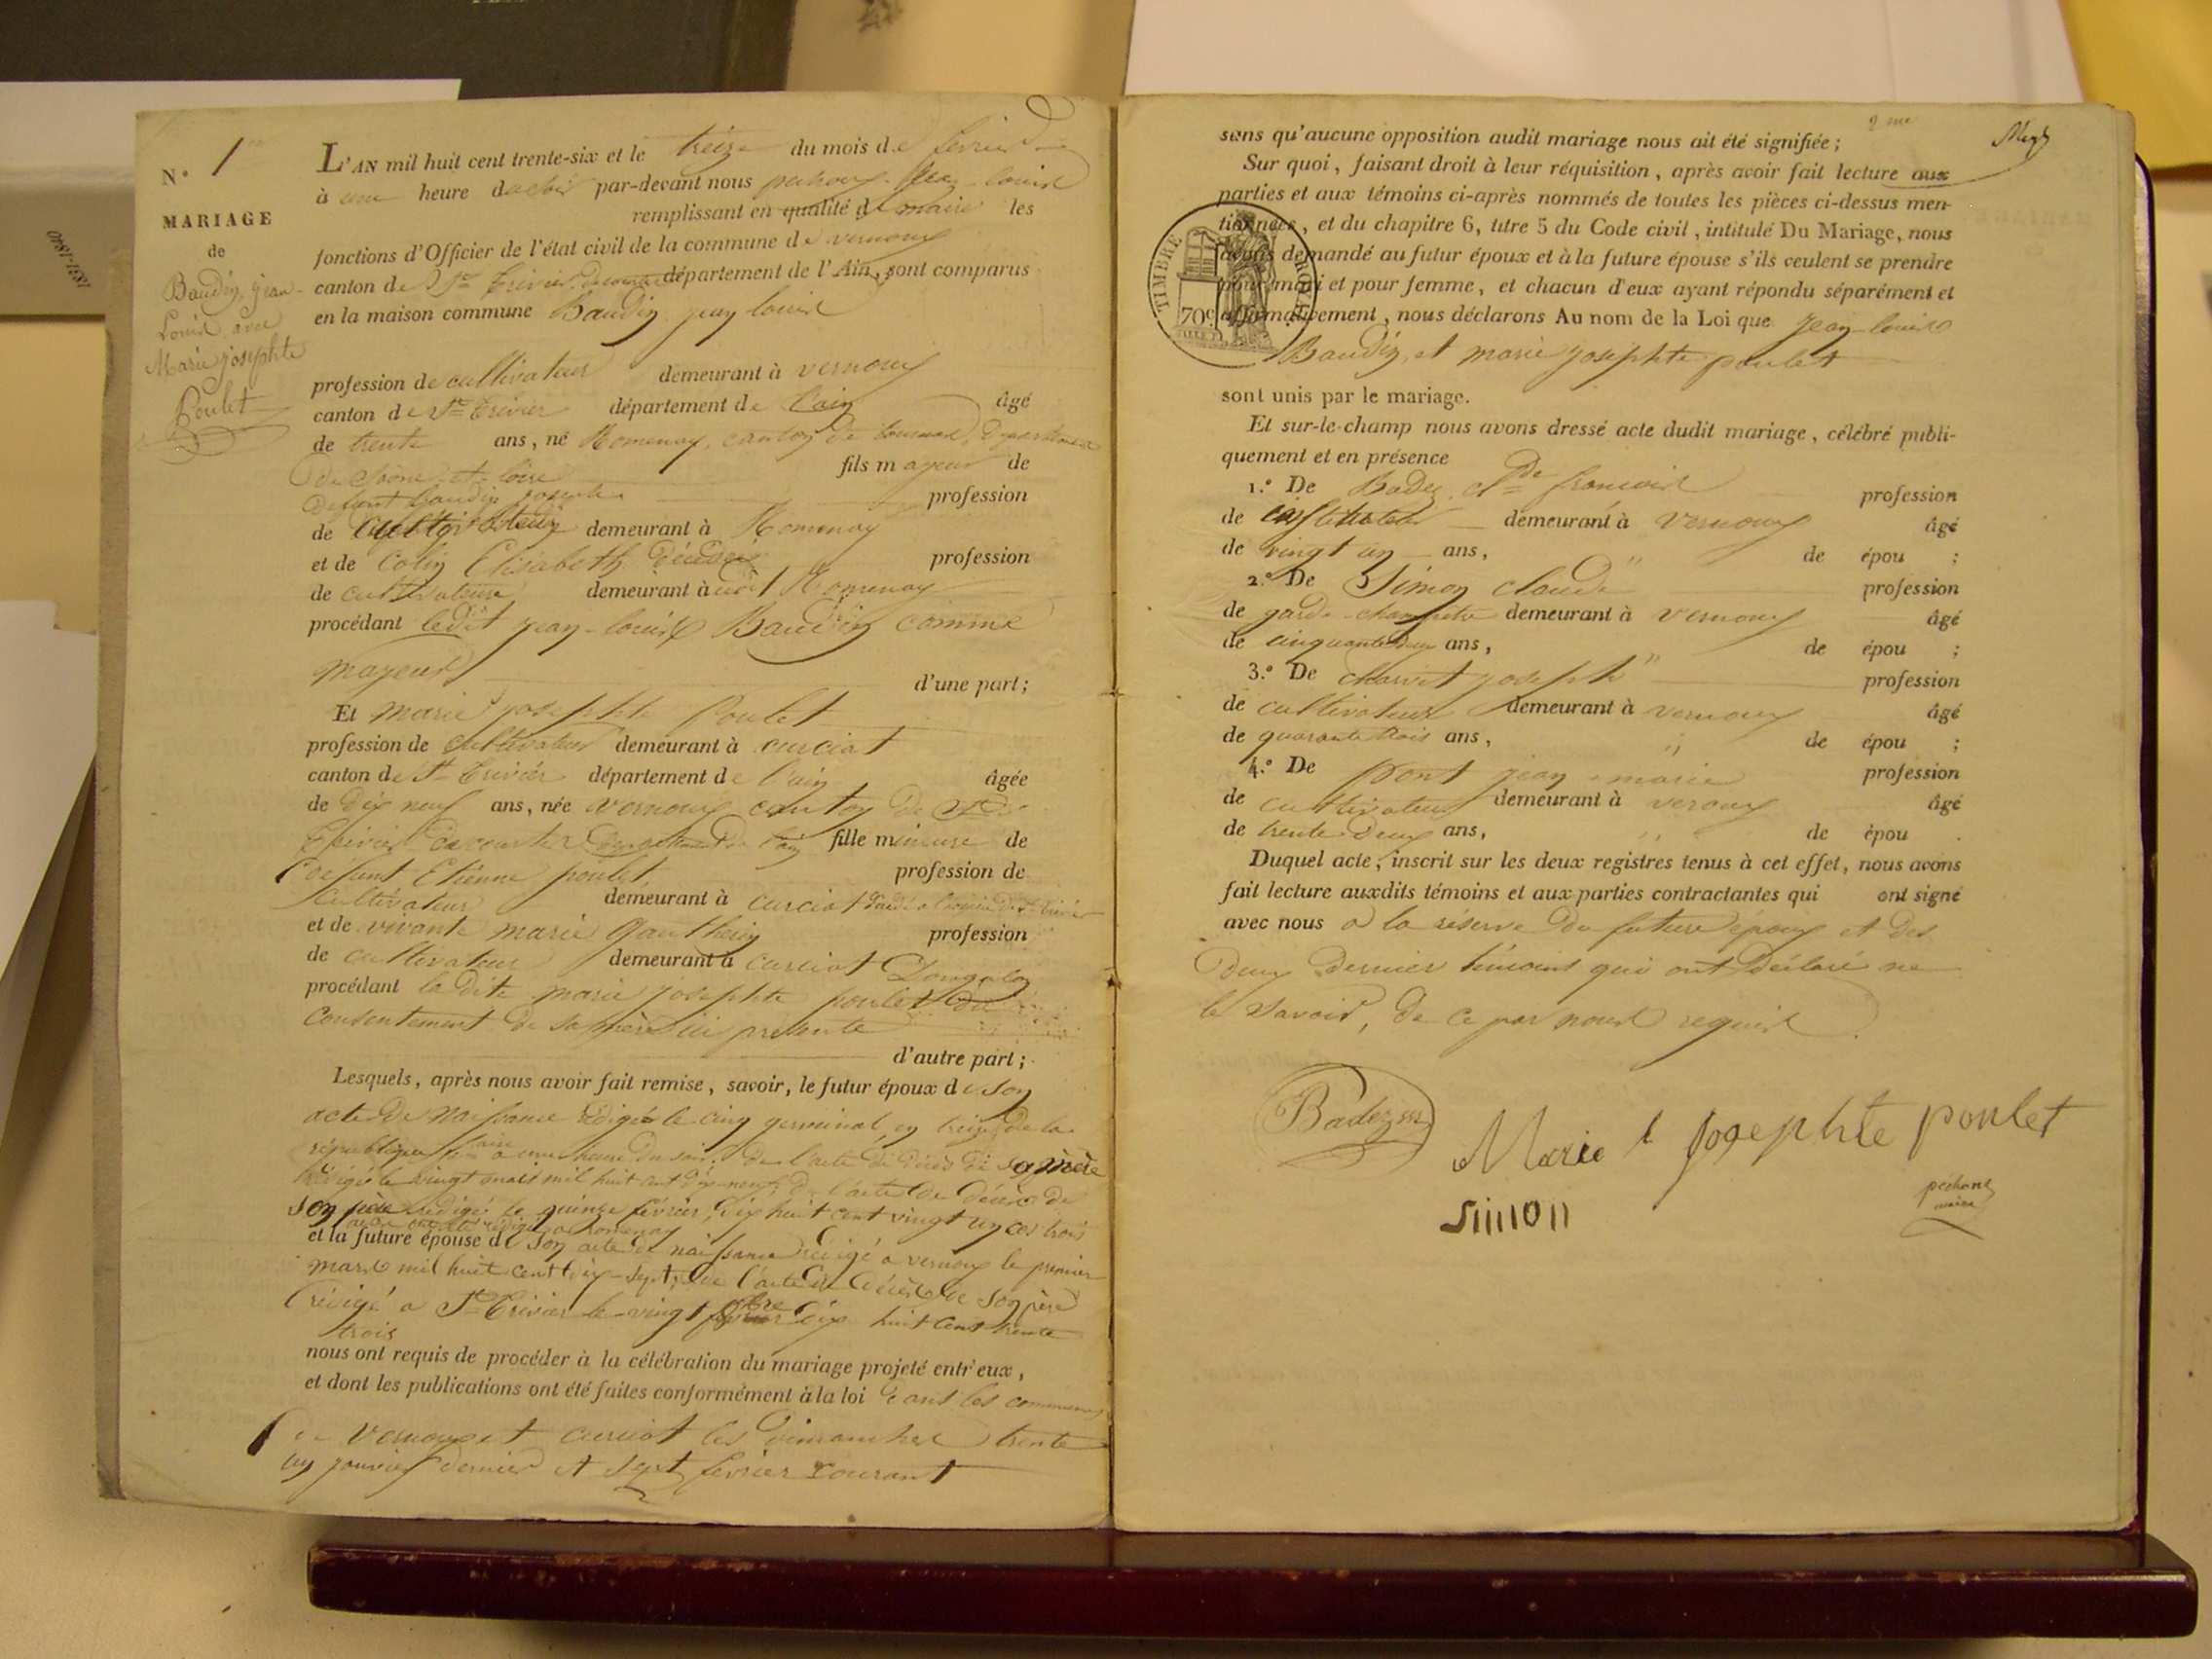 1831-1840
N.° 1
MARIAGE
de
Baudin, jean-
Louis avec
Marie josephte
Poulet
L'AN mil huit cent trente-six et le treize du mois de février
à une heure par-devant nous jean louis
remplissant en qualité de maire les
fonctions d'Officier de l'état civil de la commune de vernoux
canton de St Trivier de courtes département de l'Ain, sont comparus
en la maison commune Baudin jean louis
profession de cultivateur demeurant à vernoux
canton de St Trivier département de l'ain âgé
de trente ans, né Romenay, canton de tournus, département
de Saone et loire fils mayeur de
défunt Baudin joseph profession
de cultivateur demeurant à Romenay
et de Colin Elisabeth décédée profession
de cultivateur demeurant à udit Romenay
procédant ledit jean-louis Baudin comme
mayeur
d'une part;
Et marie josephte Poulet
profession de cultivateur demeurant à curciat
canton de St Trivier département de l'ain âgée
de dix neuf ans, née vernoux canton de St
trivier de courtes département de l'ain fille mineure de
défunt Etienne poulet profession de
cultivateur demeurant à curciat
et de vivante marie Gautheron profession
de cultivateur demeurant à curciat Dongalon
procédant la dite marie josephte poulet du
consentement de sa mère ici présente
d'autre part;
Lesquels, après nous avoir fait remise, savoir, le futur époux de son
acte de naissance rédigé le cinq germinal an treize de la
république à une heure du soir, de l'acte de décès de sa mère
rédigé le vingt mars mil huit cent dix-neuf, de l'acte de décès de
son père rédigé le quinze février dix huit cent vingt un ces trois
actes ont été rédigé a Romenay
et la future épouse de son acte de naissance rédigé a vernoux le premier
mars mil huit cent dix-sept, de l'acte de décès de son père
rédigé a St Trivier le vingt dix huit cent trente
trois
nous ont requis de procéder à la célébration du mariage projeté entr'eux,
et dont les publications ont été faites conformément à la loi dans les communes
de vernoux et curciat les dimanches trente
un janvier dernier et sept février courant
2 me
sans qu'aucune opposition audit mariage nous ait été signifiée;
Sur quoi, faisant droit à leur réquisition, après avoir fait lecture aux
parties et aux témoins ci-après nommés de toutes les pièces ci-dessus men-
tionnées, et du chapitre 6, titre 5 du Code civil, intitulé Du Mariage, nous
avons demandé au futur époux et à la future épouse s'ils veulent se prendre
pour mari et pour femme, et chacun d'eux ayant répondu séparément et
affirmativement, nous déclarons Au nom de la Loi que jean-louis
Baudin, et marie josephte poulet
TIMBRE ROYAL
70c
sont unis par le mariage.
Et sur-le-champ nous avons dressé acte dudit mariage, célébré publi-
quement et en présence
1.° De Badez Cl de francois profession
de instituteur demeurant à vernoux âgé
de vingt un ans, de épou ;
2.° De Simon claude profession
de garde-champetre demeurant à vernoux âgé
de cinquante deux ans, de épou ;
3.° De charvet joseph profession
de cultivateur demeurant à vernoux âgé
de quarante trois ans, de épou ;
4.° De pont jean marie profession
de cultivateur demeurant à veroux âgé
de trente deux ans, de épou .
Duquel acte, inscrit sur les deux registres tenus à cet effet, nous avons
fait lecture auxdits témoins et aux parties contractantes qui ont signé
avec nous a la réserve du future époux et des
deux dernier témoins qui ont déclaré ne
le savoir, de ce par nous requis
Badez Marie Josephte poulet
simon
péchoux
maire